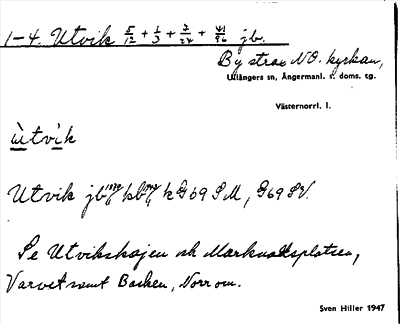 1-4. Utvik 5/12 + 1/3 + 7/24 + 41/96 jb.
By strax NO. kyrkan,
Ullångers sn, Ångermanl. s. doms. tg.
Västernorrl. l.
ùtvìk
Utvik jb kb k G69 SM, G69 SV.
Se Utvikskajen och Marknadsplatsen,
Varvet samt Backen, Norrom.
Sven Hiller 1947